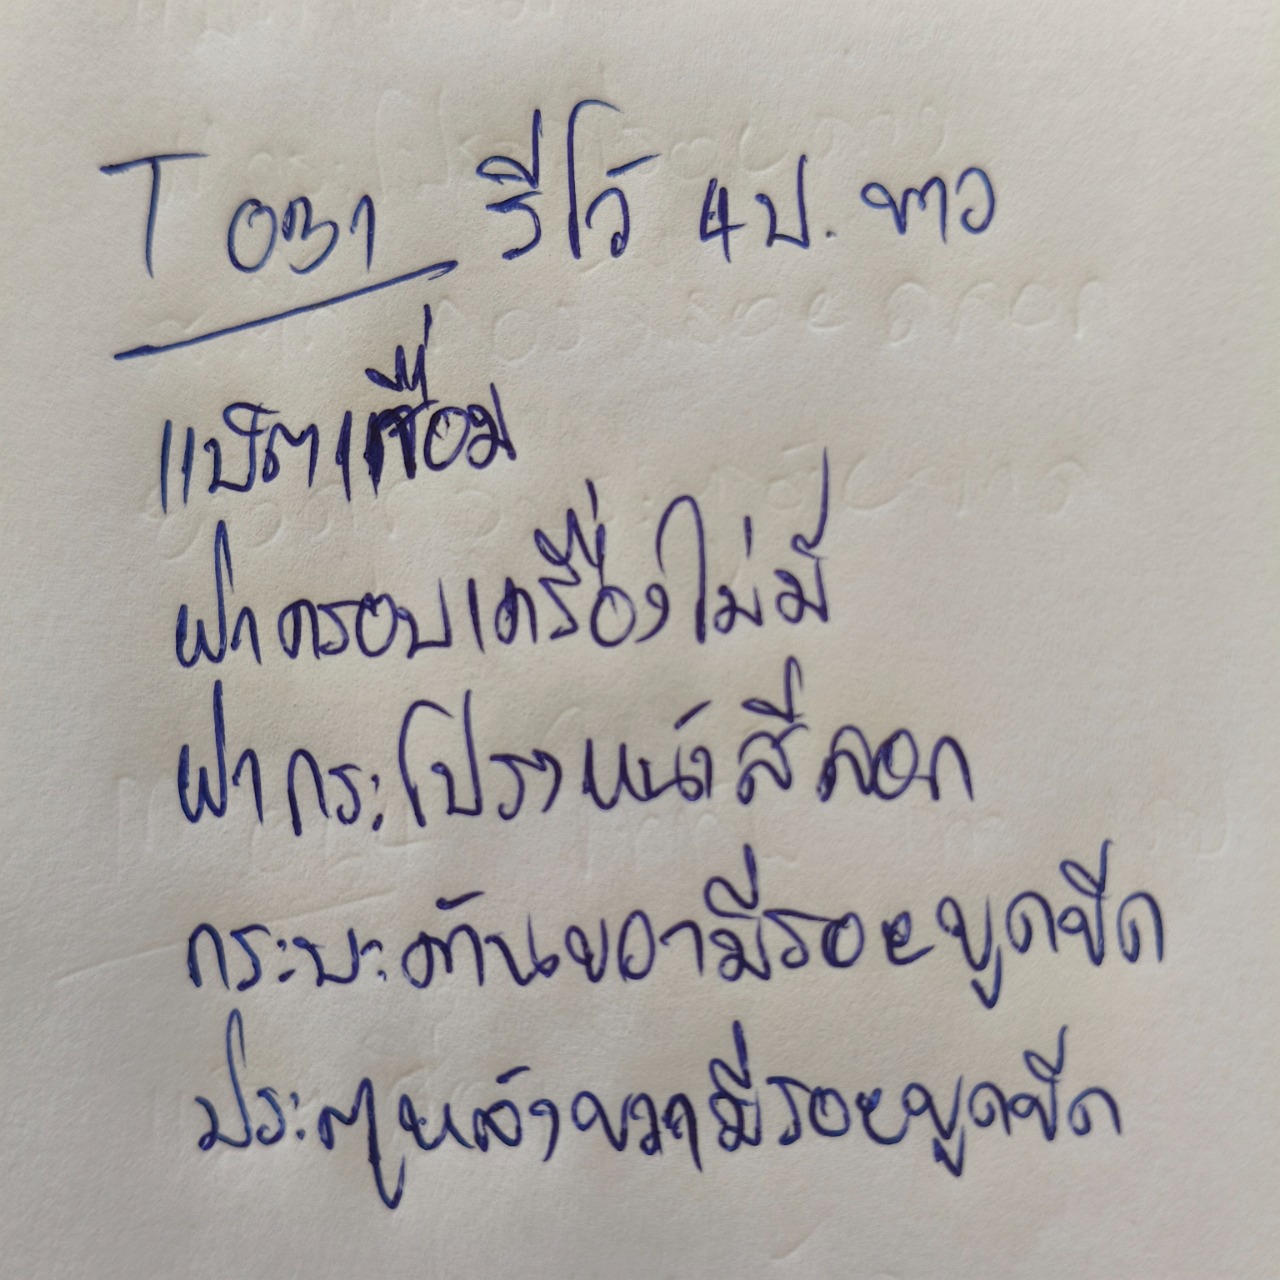 T อตา รีโว้ 4ป. ขาว
แบ็ตเสื่อม
ฝาครอบเครื่องไม่มี
ฝากระโปรงหน้าสีลอก
กระบะด้านขวามีรอยขูดขีด
ประตูหลังขวามีรอยขูดขีด